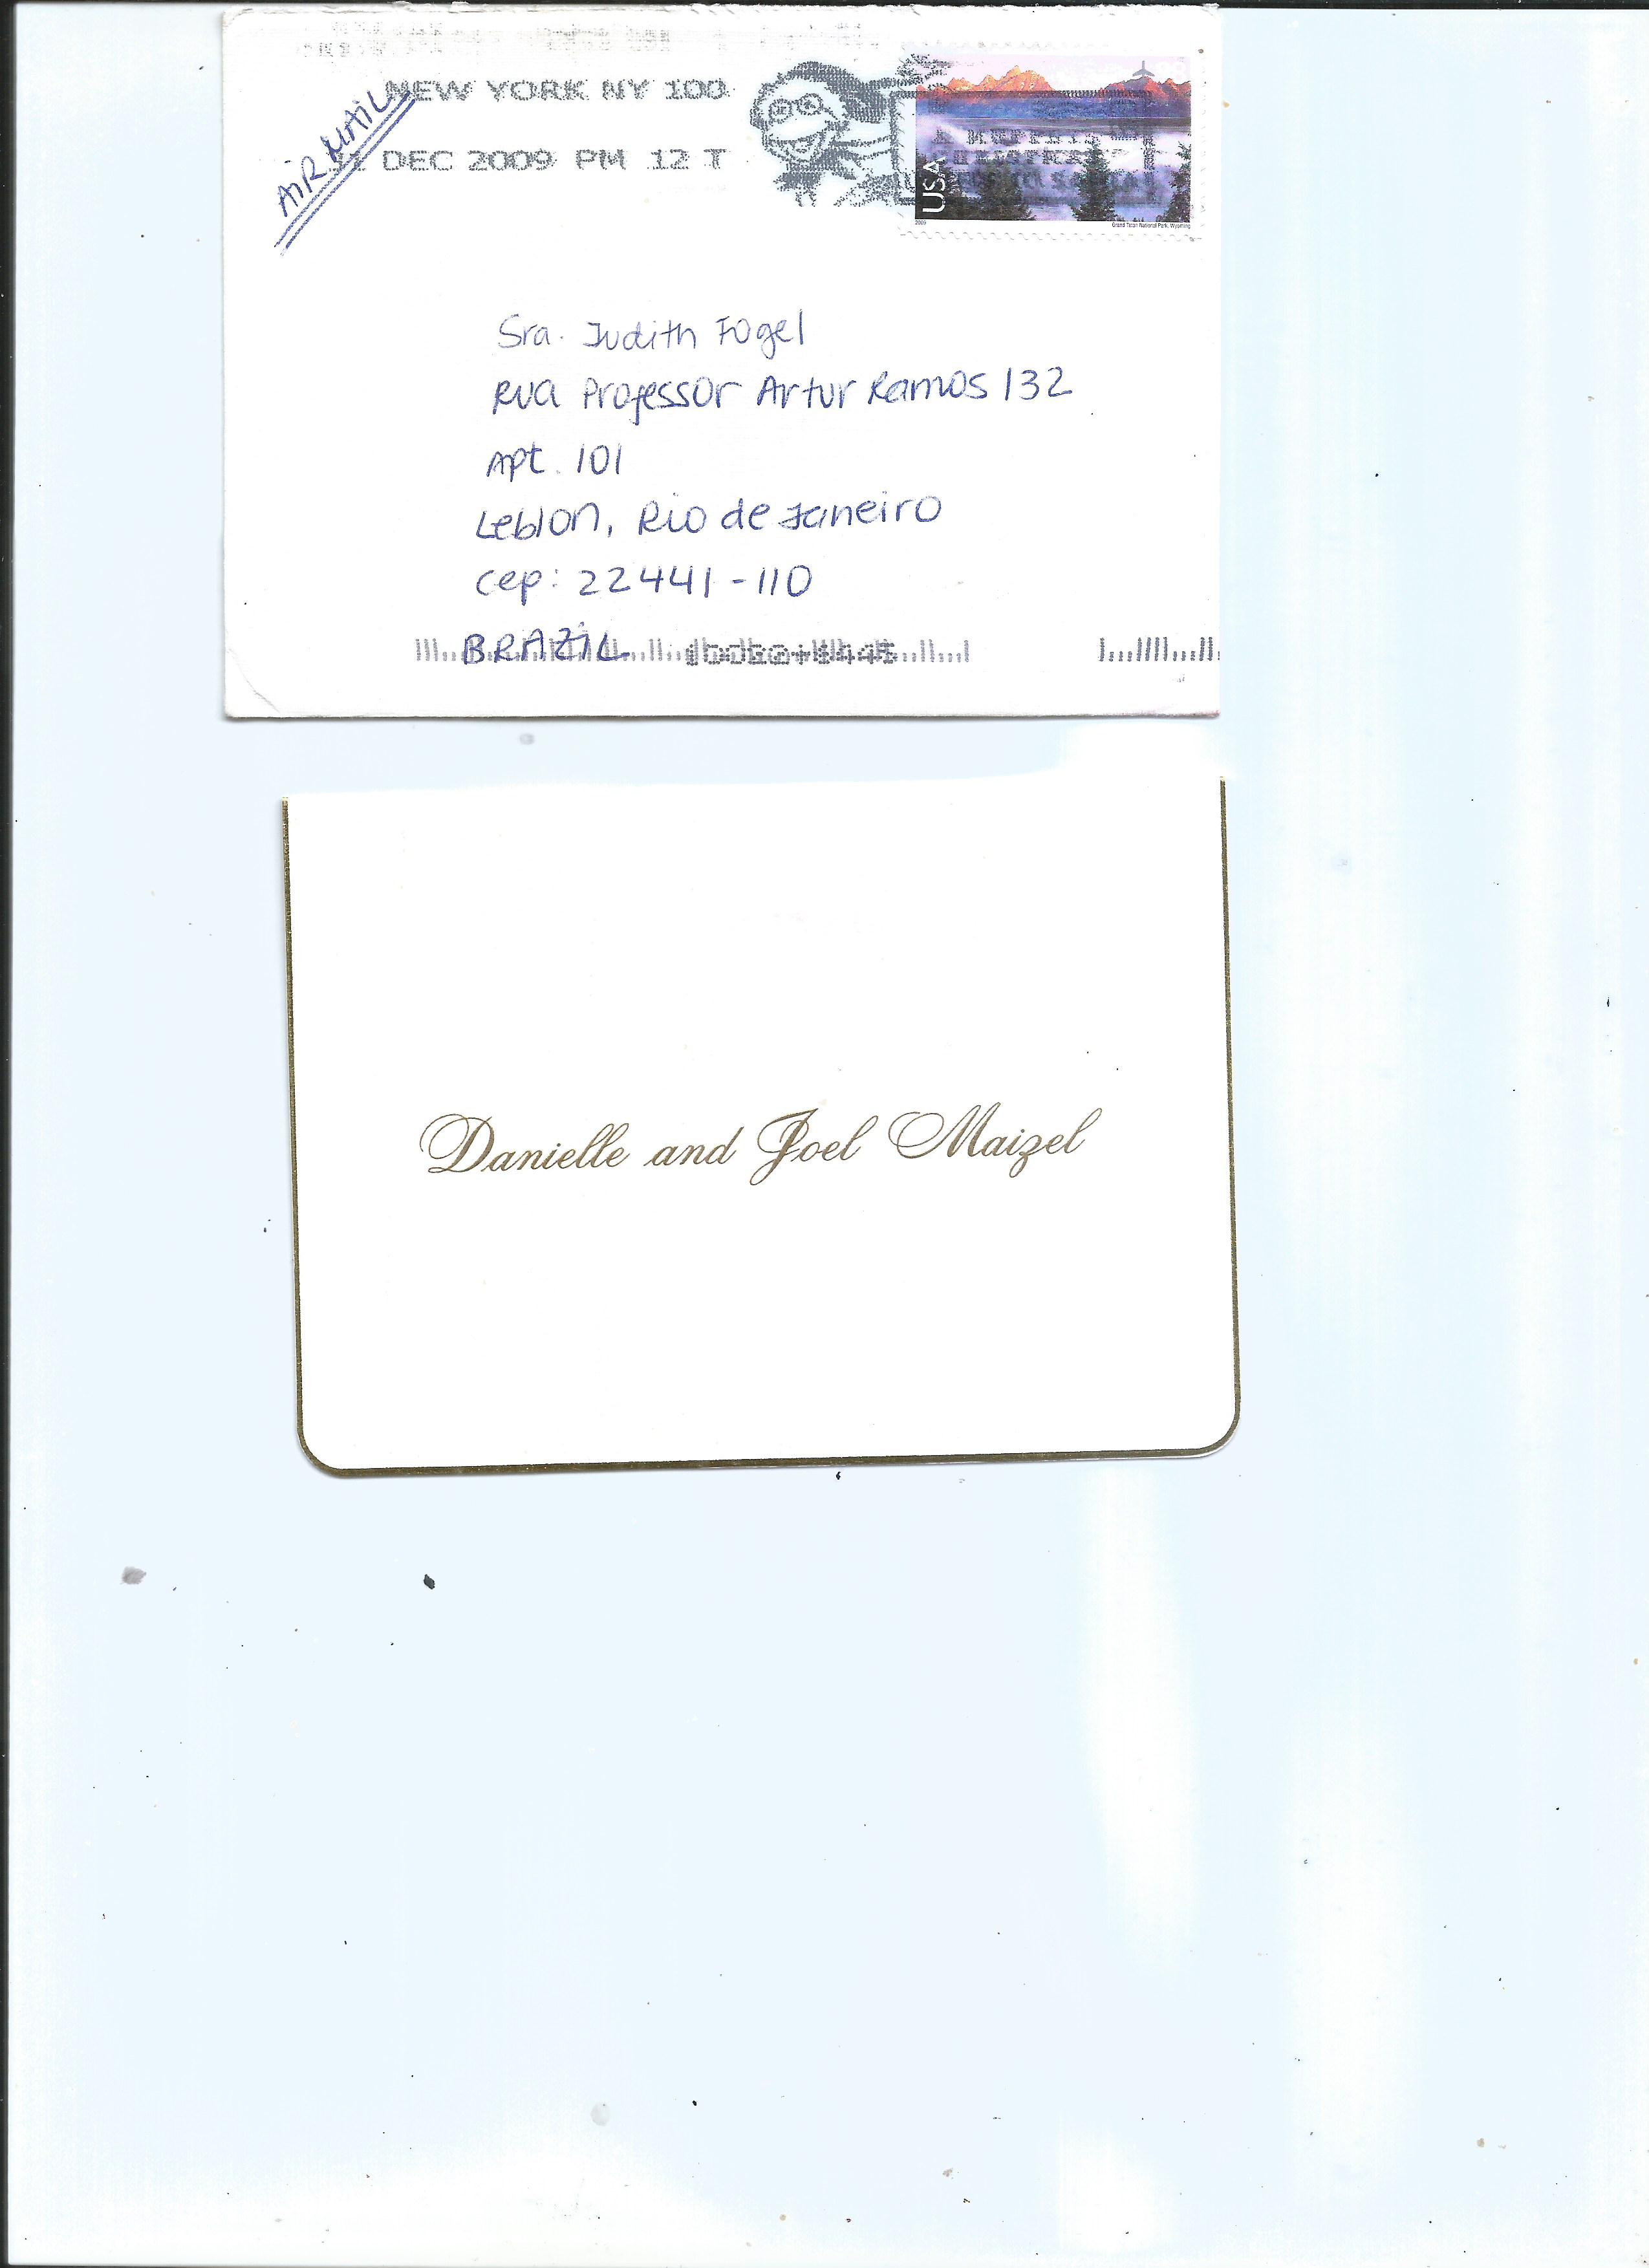 NEW YORK NY 100
AIR MAIL
DEC 2009 PM 12 T
USA
2009
Grand Teton National Park, Wyoming
Sra. Judith Fogel
Rua Professor Artur Ramos 132
Apt. 101
Leblon, Rio de Janeiro
cep: 22441-110
BRAZIL
Danielle and Joel Maizel